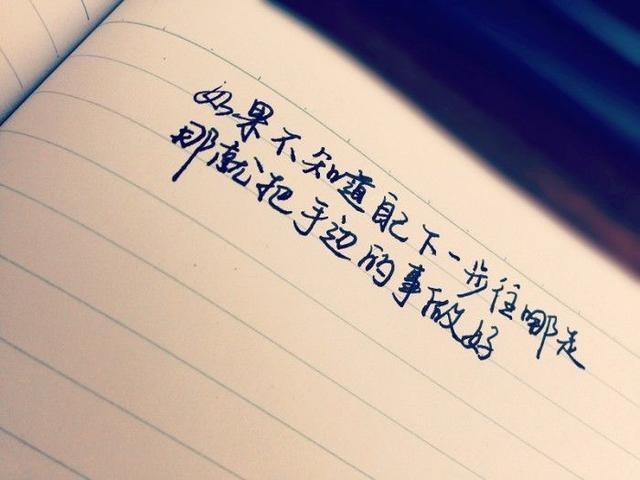 如果不知道自己下一步往哪走
那就把手边的事做好